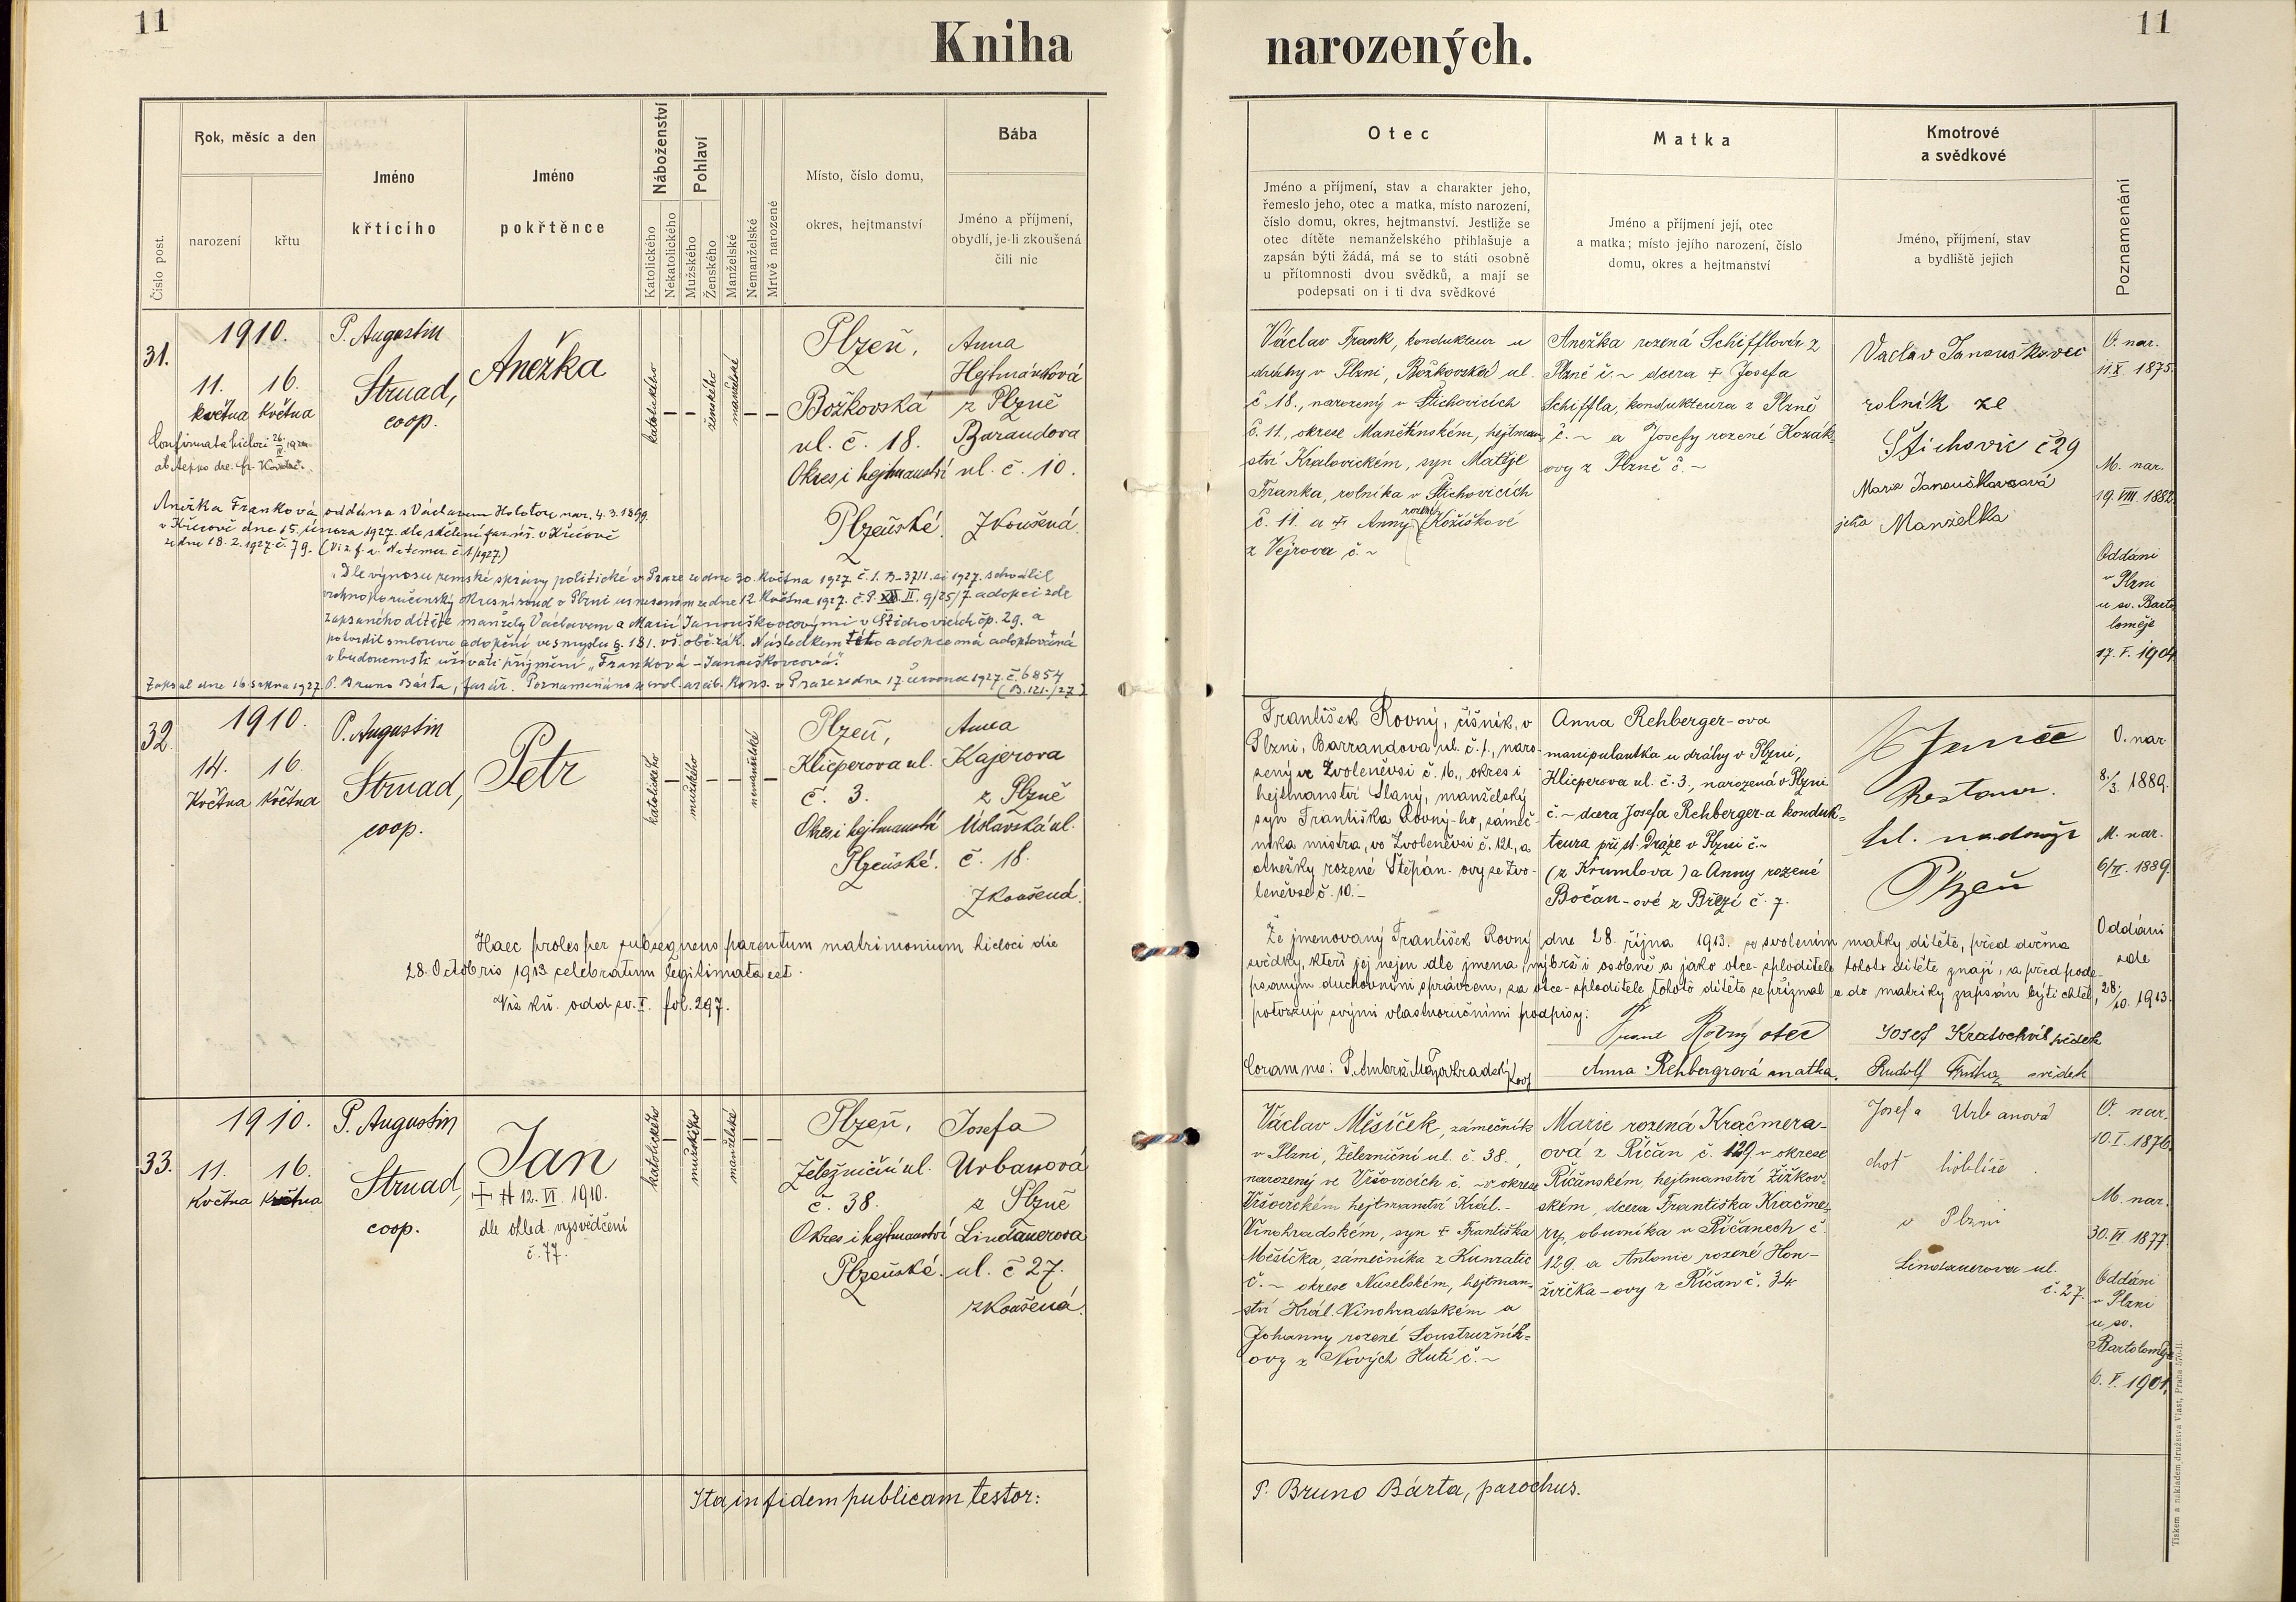 11
Kniha
narozených.
11
Číslo post.
Rok, měsíc a den
narození
křtu
Jméno
křtícího
Jméno
pokřtěnce
Náboženství
Katolického
Nekatolického
Pohlaví
Mužského
Ženského
Manželské
Nemanželské
Mrtvě narozené
Místo, číslo domu,
okres, hejtmanství
Bába
Jméno a příjmení,
obydlí, je-li zkoušená
čili nic
Otec
Jméno a příjmení, stav a charakter jeho,
řemeslo jeho, otec a matka, místo narození,
číslo domu, okres, hejtmanství. Jestliže se
otec dítěte nemanželského přihlašuje a
zapsán býti žádá, má se to státi osobně
u přítomnosti dvou svědků, a mají se
podepsati on i ti dva svědkové
Matka
Jméno a příjmení její, otec
a matka; místo jejího narození, číslo
domu, okres a hejtmanství
Kmotrové
a svědkové
Jméno, příjmení, stav
a bydliště jejich
Poznamenání
31.
1910.
11. 16.
května května
P. Augustin
Strnad,
coop.
Anežka
katolického
–
–
ženského
manželské
–
–
Plzeň,
Božkovská
ul. č. 18.
Okres i hejtmanství
Plzeňské.
Anna
Hejtmánková
z Plzně
Barandova
ul. č. 10.
Zkoušená.
Anežka Franková oddána s Václavem Holotou nar. 4. 3. 1899
v Křicově dne 15. února 1927. dle sdělení far. úř. v Křicově
ze dne 18. 2. 1927. č. 79.
"Dle výnosu zemské správy politické v Praze ze dne 30. května 1927. č. 1. B-3711. ai 1927. schválil
vrchnoporučenský okresní soud v Plzni usnesením ze dne 12. května 1927. č. P. XII. II. 9/25/7 adopci zde
zapsaného dítěte manžely Václavem a Marií Janouškovcovými v Štichovicích čp. 29. a
potvrdil smlouvu adopční ve smyslu §. 181. vš. obč. zák. Následkem této adopce má adoptovaná
v budoucnosti užívati příjmení „Franková-Janouškovcová".
Zapsal dne 16. srpna 1927. P. Bruno Bárta, farář. Poznamenáno z výn. arcib. kons. v Praze ze dne 17. července 1927. č. 6854
(B. 121./27)
Václav Frank, kondukteur u
dráhy v Plzni, Božkovská ul.
č. 18., narozený v Štichovicích
č. 11., okrese Manětínském, hejtman-
ství Kralovickém, syn Matěje
Franka, rolníka v Štichovicích
č. 11. a + Anny rozené Kožíškové
z Vejrova č. ~
Anežka rozená Schifflová z
Plzně č. ~ dcera + Josefa
Schiffla, kondukteura z Plzně
č. ~ a Josefy rozené Kozák-
ovy z Plzně č. ~
Vaclav Janouškovec
rolník ze
Štichovic č 29
Marie Janouškovcová
jeho Manželka
O. nar.
11. X. 1875.
M. nar.
19. VIII. 1882.
Oddáni
v Plzni
u sv. Barto-
loměje
17. V. 1904
32.
1910.
14. 16.
Května Května
P. Augustin
Strnad,
coop.
Petr
katolického
–
mužského
–
–
nemanželské
–
Plzeň,
Klicperova ul.
č. 3.
Okres i hejtmanství
Plzeňské.
Anna
Kajerova
z Plzně
Úslavská ul.
č. 18.
Zkoušená.
Haec proles per subsequens parentum matrimonium hic loci die
28. Octobris 1913 celebratum legitimata est.
Viz kn. odd. sv. I. fol. 297.
František Rovný, číšník, v
Plzni, Barrandova ul. č. 1., naro-
zený ve Zvoleněvsi č. 16., okres i
hejtmanství Slaný, manželský
syn Františka Rovný-ho, zámeč-
níka mistra, ve Zvoleněvsi č. 121., a
Anežky rozené Štěpán-ovy ze Zvo-
leněvse č. 10. –
Anna Rehberger-ova
manipulantka u dráhy v Plzni,
Klicperova ul. č. 3., narozená v Plzni
č. ~ dcera Josefa Rehberger-a konduk-
teura při st. Dráze v Plzni č. ~
(z Krumlova) a Anny rozené
Bočan-ové z Březí č. 7.
Restaur.
Plzeň
O. nar.
8./3. 1889.
M. nar.
6/VI. 1889.
Oddáni
zde
28./10. 1913.
Že jmenovaný František Rovný dne 28. října 1913. se svolením matky dítěte, před dvěma
svědky, kteří jej nejen dle jmena, nýbrž i osobně a jako otce-sploditele tohoto dítěte znají, a před pode-
psaným duchovním správcem, za otce-sploditele tohoto dítěte se přiznal a do matriky zapsán býti chtěl,
potvrzují svými vlastnoručními podpisy:
Coram me: P. Ambrž
Frant Rovný otec
Anna Rehbergrová matka.
Josef Kratochvíl svědek
Rudolf svědek
33.
1910.
11. 16.
Května Května
P. Augustin
Strnad,
coop.
Jan
+ 12. VI. 1910.
dle ohled. vysvědčení
č. 77.
katolického
–
mužského
–
manželské
–
–
Plzeň,
Železniční ul.
č. 38.
Okres i hejtmanství
Plzeňské.
Josefa
Urbanová
z Plzně
Lindauerova
ul. č 27.
zkoušená.
Václav Měsíček, zámečník
v Plzni, Železniční ul. č. 38.,
narozený ve Vršovicích č. ~ v okrese
Vršovickém hejtmanství Král.-
Vinohradském, syn + Františka
Měsíčka, zámečníka z Kunratic
č. ~ okrese Nuselském, hejtman-
ství Král. Vinohradském a
Johanny rozené Soustružník-
ovy z Nových Hutí č. ~
Marie rozená Kračmera-
ová z Říčan č. 129 v okrese
Říčanském, hejtmanství Žižkov-
ském, dcera Františka Kračme-
ry, obuvníka v Říčanech č.
129. a Antonie rozené Hon-
žvička-ovy z Říčan č. 34.
Josefa Urbanová
choť
v Plzni
Lindauerova ul.
č. 27.
O. nar.
10. I. 1876.
M. nar.
30. VI 1877.
Oddáni
v Plzni
u sv.
Bartoloměje
6. V. 1901.
Ita in fidem publicam testor:
P. Bruno Bárta, parochus.
Tiskem a nákladem družstva Vlast, Praha 570-II.